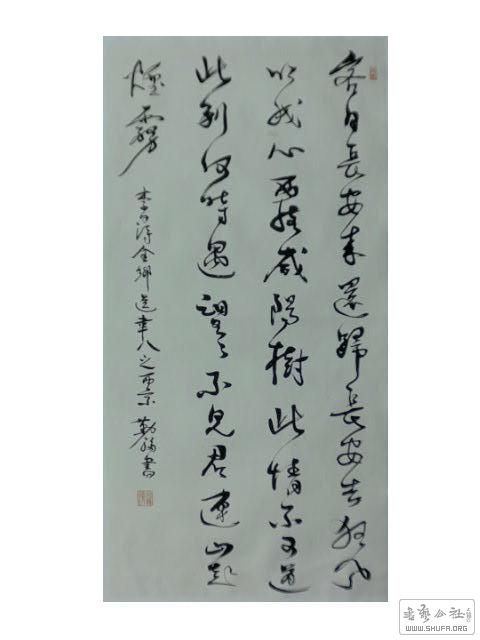 客自長安来還歸長安去狂風
吹我心西掛咸陽樹此情不可道
此别何時遇望望不見君連山起
煙霧
李白詩金鄉送韋八之西京 勤 書
书艺公社
WWW.SHUFA.ORG